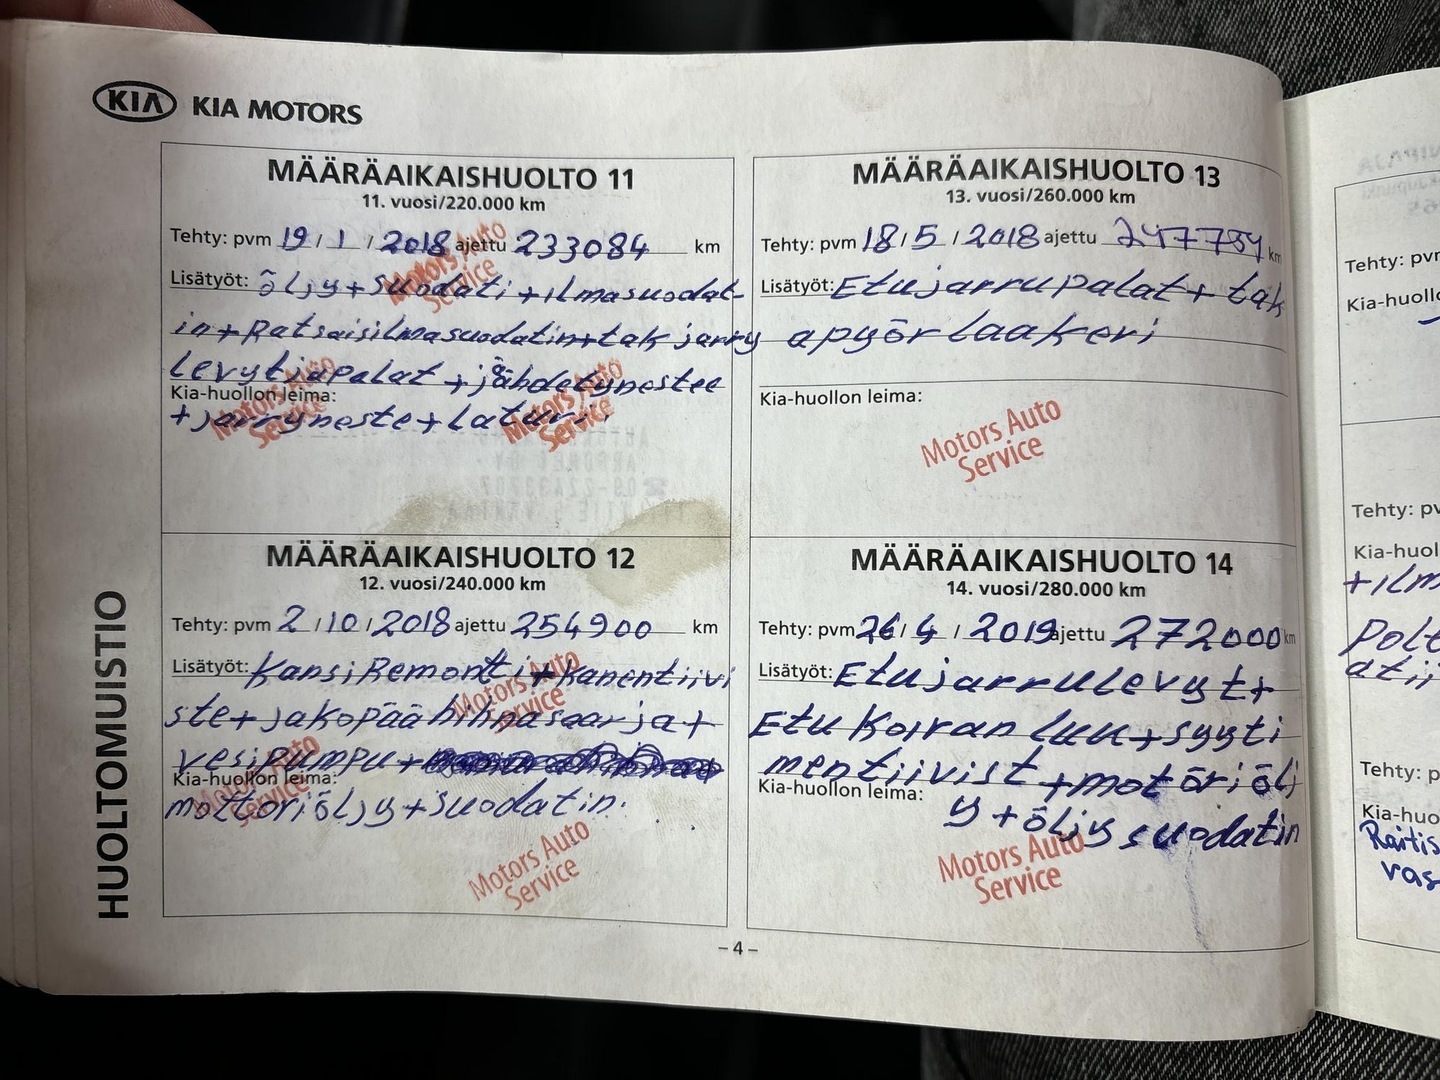 KIA KIA MOTORS
HUOLTOMUISTIO
MÄÄRÄAIKAISHUOLTO 11
11. vuosi/220.000 km
Tehty: pvm 19 / 1 / 2018 ajettu 233084 km
Lisätyöt: öljy+suodati+ilmasuodat-
in+Ratsaisilmasuodatin+tak jarry
levytjapalat+jähdetynestee
Kia-huollon leima:
+jarryneste+Laturi.
Motors Auto
Service
Motors Auto
Service
Motors Auto
Service
MÄÄRÄAIKAISHUOLTO 12
12. vuosi/240.000 km
Tehty: pvm 2 / 10 / 2018 ajettu 254900 km
Lisätyöt: KansiRemontti+Kanentiivi
ste+jakopää hihnasarja+
vesipumpu+
Kia-huollon leima:
mottoriöljy+suodatin.
Motors Auto
Service
Motors Auto
Service
Motors Auto
Service
MÄÄRÄAIKAISHUOLTO 13
13. vuosi/260.000 km
Tehty: pvm 18 / 5 / 2018 ajettu 247784 km
Lisätyöt: Etujarrupalat+tak
apyörlaakeri
Kia-huollon leima:
Motors Auto
Service
MÄÄRÄAIKAISHUOLTO 14
14. vuosi/280.000 km
Tehty: pvm 26 / 4 / 2019 ajettu 272000 km
Lisätyöt: Etujarrulevyt+
Etu Koiran luu+syyti
mentiivist+motöriölj
Kia-huollon leima:
y+öljysuodatin
Motors Auto
Service
– 4 –
Tehty: pvm
Kia-huollo
Tehty: pv
Kia-huol
+ilm
Polt
Tehty: p
Kia-huo
Raitis
vas